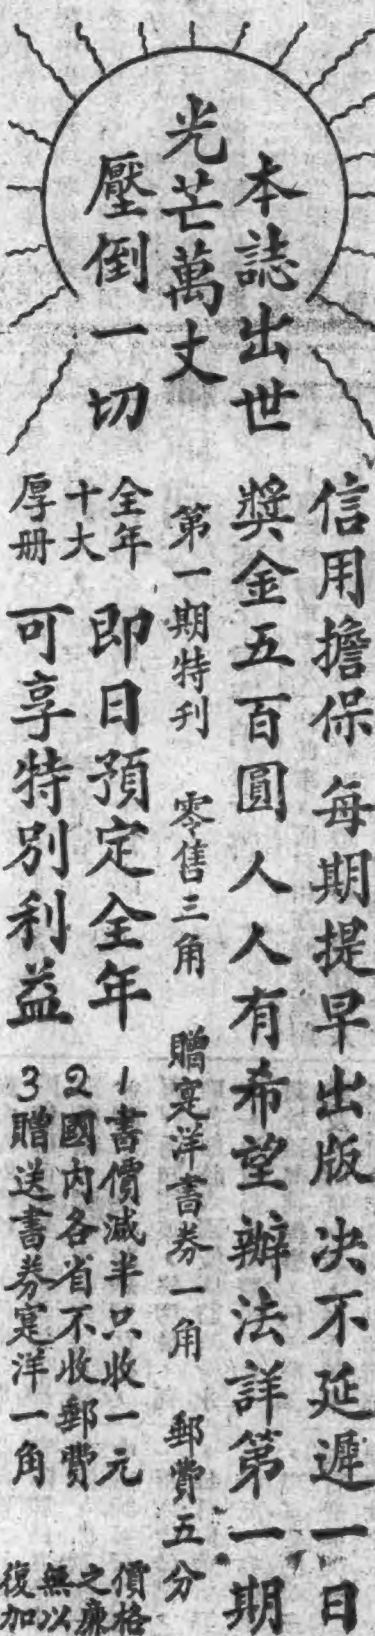 本誌出世
光芒萬丈
壓倒一切
信用擔保 每期提早出版 决不延遲一日
獎金五百圓 人人有希望辦法詳第一期
第一期特刊 零售三角 贈寔洋書券一角 郵費五分
全年
十大
厚册
即日預定全年
可享特別利益
1書價減半只收一元
2國內各省不收郵費
3贈送書券寔洋一角
價格
之廉
無以
復加